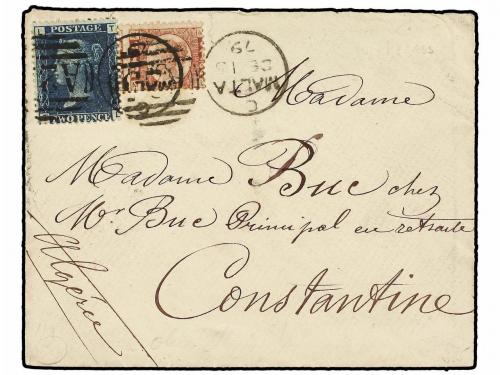 POSTAGE
TWO PENCE
C
MALTA
79
Madame
Madame Buc chez
Mr Buc Principal en retraite
Constantine
Algérie